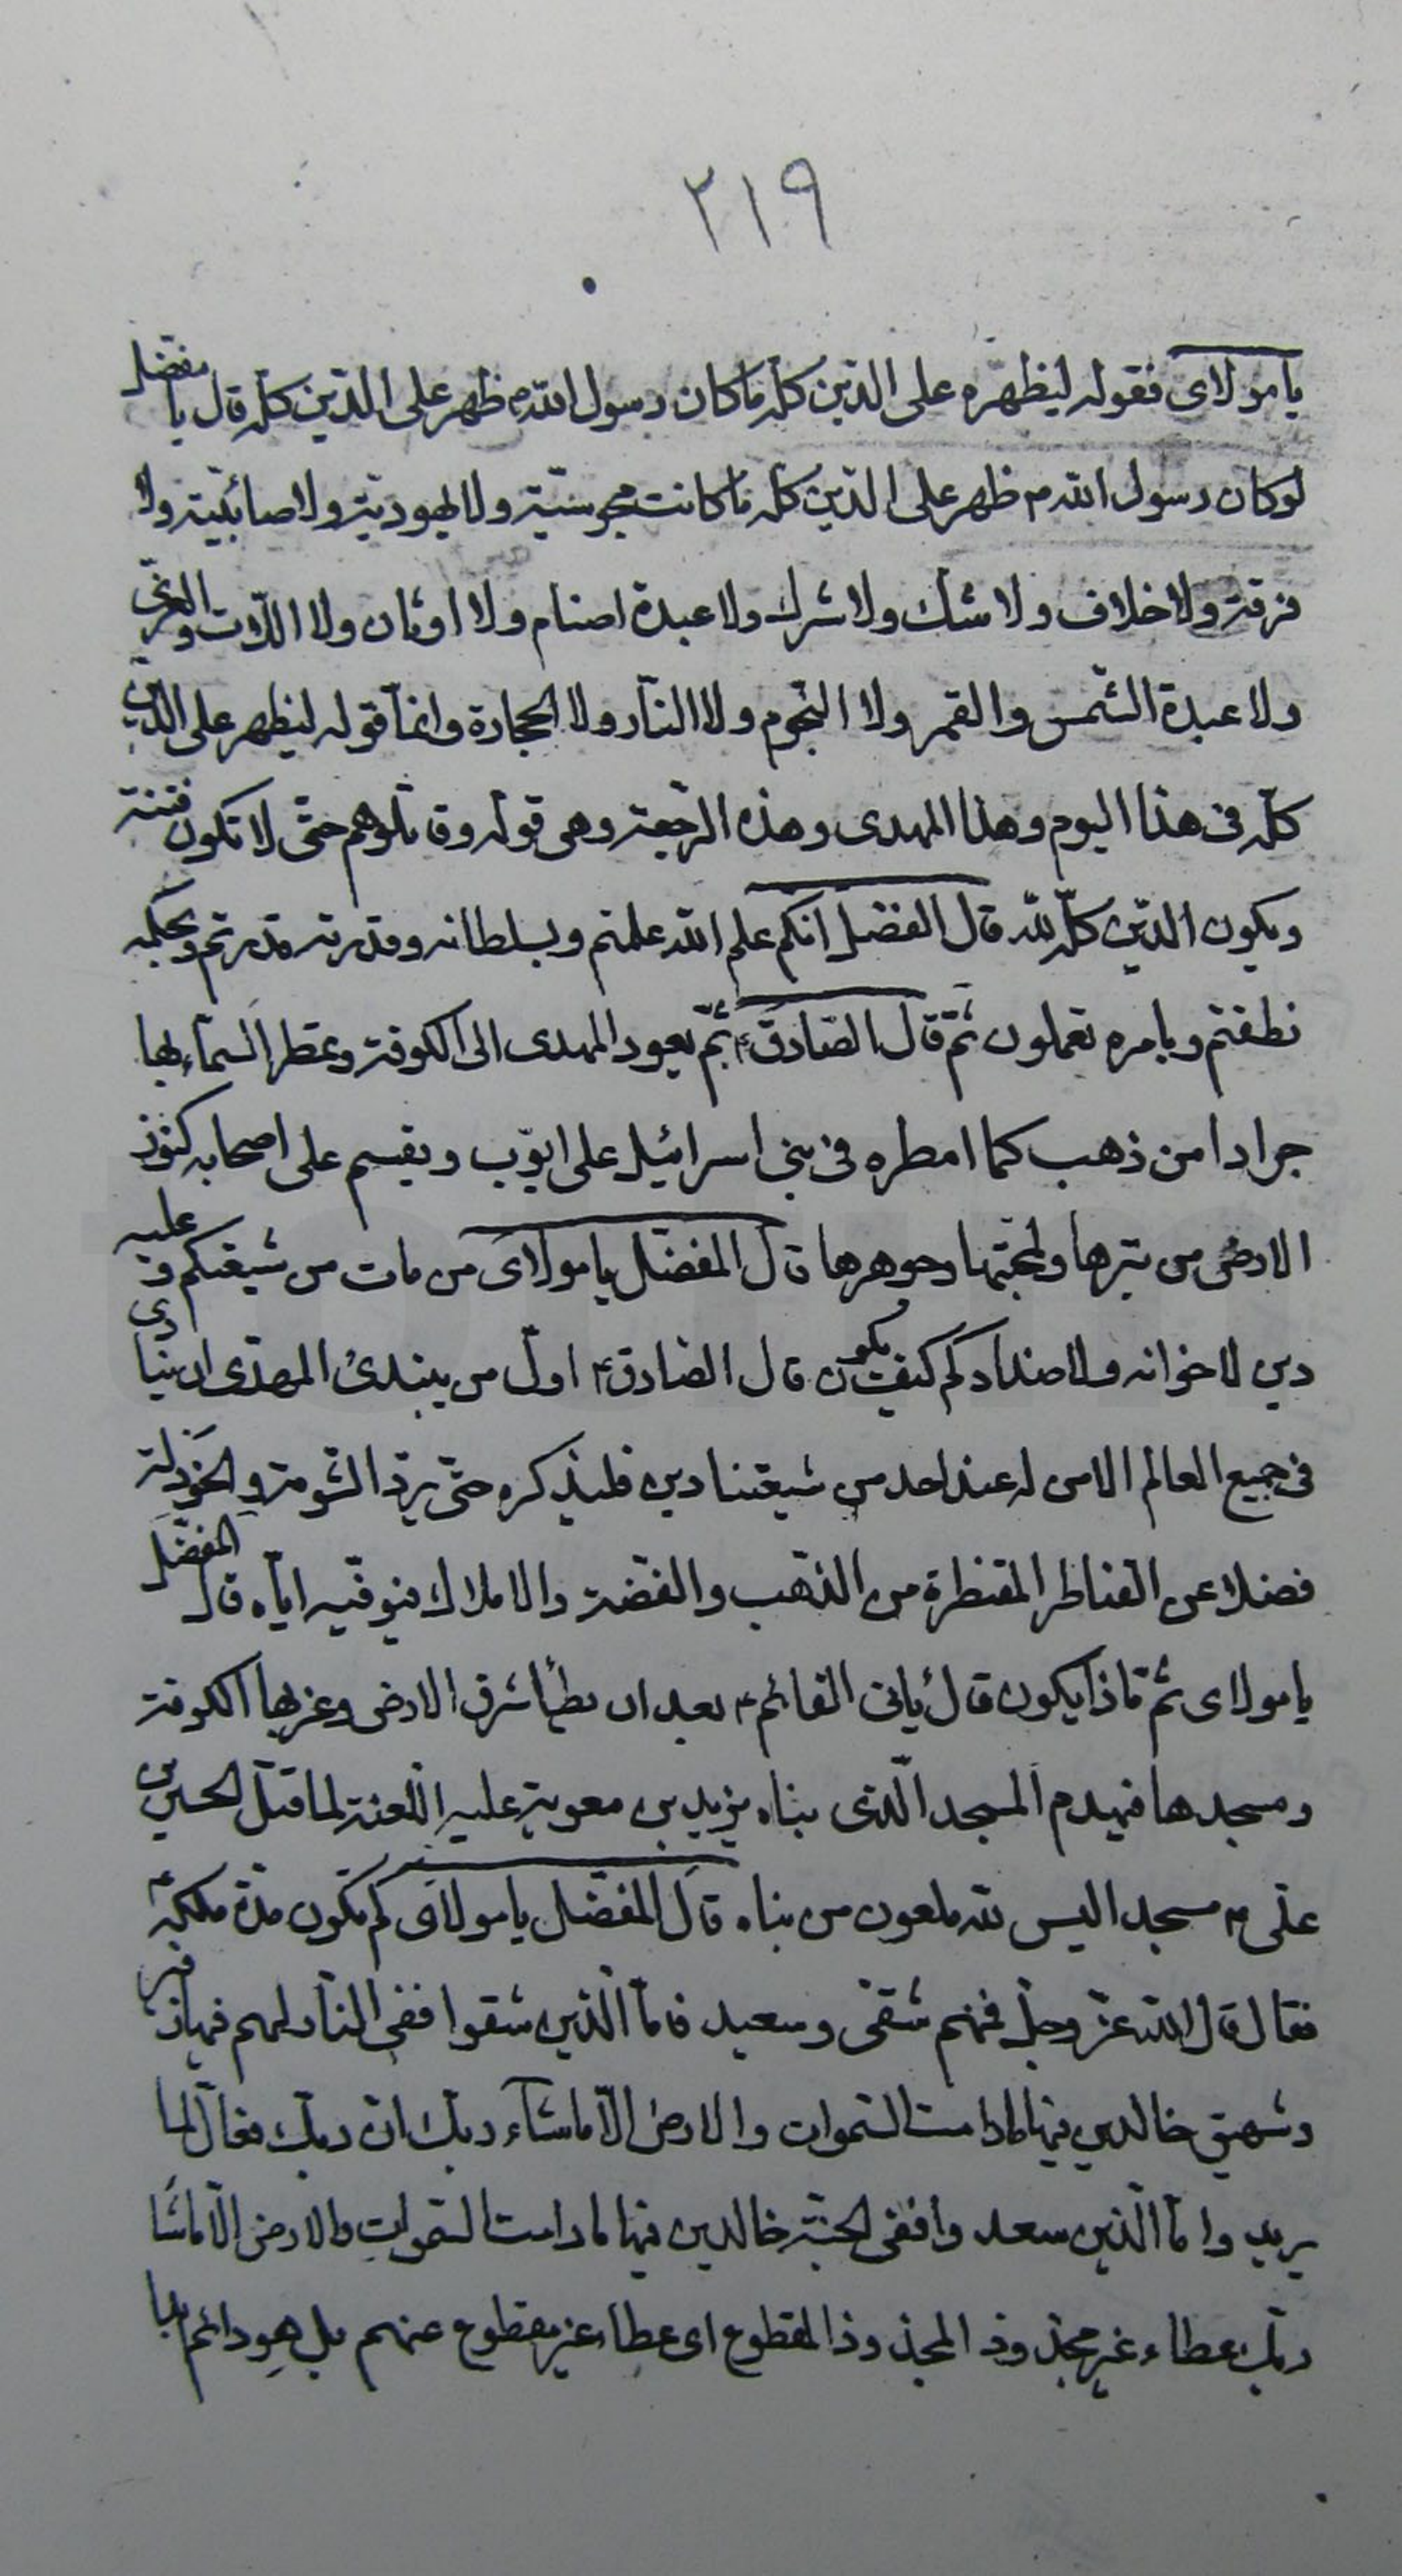 ٢١٩
يا مولاى فقوله ليظهره على الدّين كلّه ماكان رسول اللّهم ظهر على الدّين كلّه قال يا مفضل
لوكان رسول اللّه م ظهر على الدّين كلّه ما كانت مجوسيّة ولا يهوديّة ولا صائبيّة ولا
فرقة ولا خلاف ولا شك ولا شرك ولا عبدة اصنام ولا اوثان ولا اللّات والعزّى
ولا عبدة الشّمس والقمر ولا النّجوم ولا النّار ولا الحجارة وانمّا قوله ليظهر على الدّين
كلّه فى هذا اليوم وهذا المهدى وهذه الرّجعة وهى قوله وقاتلوهم حتّى لا تكون فتنة
ويكون الدّين كلّه للّه قال المفضل انكم علم اللّه علمتم وبسلطانه وقدرته قدرتم وبحكمه
نطقتم وبامره تعملون ثمّ قال الصّادق ع ثمّ يعود المهدى الى الكوفة وتمطر السّماء بها
جرادا من ذهب كما امطره فى بنى اسرائيل على ايّوب ويقسم على اصحابه كنوز
الارض من تبرها ولجينها وجوهرها قال المفضّل يا مولاى من مات من شيعتكم وعليه
دين لاخوانه ولاضدادكم كيف يكون قال الصّادق ع اوّل من يبتدئ المهدى ان ينادى
فى جميع العالم الا من له عند احد من شيعتنا دين فليذكره حتّى يردّ الثّومة والخردلة
فضلا عن القناطر المقنطرة من الذّهب والفضّة والاملاك فيوفّيه ايّاه قال المفضّل
يا مولاى ثمّ ماذا يكون قال ياتى القائم ع بعد ان يطأ شرق الارض وغربها الكوفة
ومسجدها فيهدم المسجد الّذى بناه يزيد بن معوية عليه اللّعنة لما قتل الحسين بن
علّى ع مسجد اليس للّه ملعون من بناه قال المفضّل يا مولاى كم تكون مدّة ملكه ع
فقال قال اللّه عزّ وجلّ فمنهم شقىّ وسعيد فامّا الّذين شقوا ففى النّار لهم فيها زفير
وشهيق خالدين فيها مادامت السّموات والارض الّا ماشآء ربّك انّ ربّك فعّال لما
يريد وامّا الّذين سعدوا ففى الجنّة خالدين فيها مادامت السّموات والارض الّا ماشا
ربّك عطاء غير مجذوذ المجذوذ المقطوع اى عطاء غير مقطوع عنهم بل هو دائم